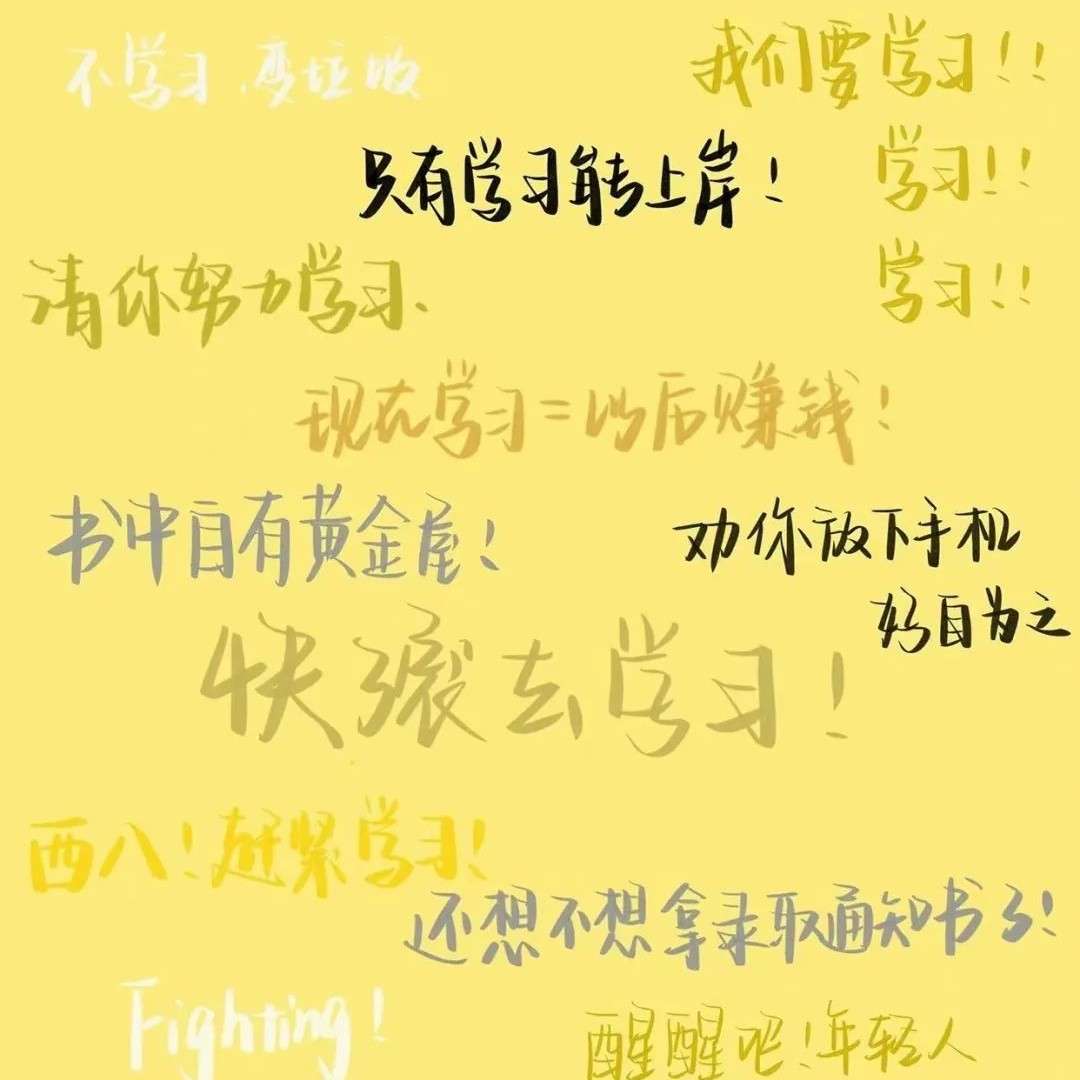 不学习，变垃圾
我们要学习！！
学习！！
学习！！
只有学习能上岸！
请你努力学习、
现在学习=以后赚钱！
书中自有黄金屋！
劝你放下手机
好自为之
快滚去学习！
西八！赶紧学习！
还想不想拿录取通知书了！
Fighting！
醒醒吧！年轻人